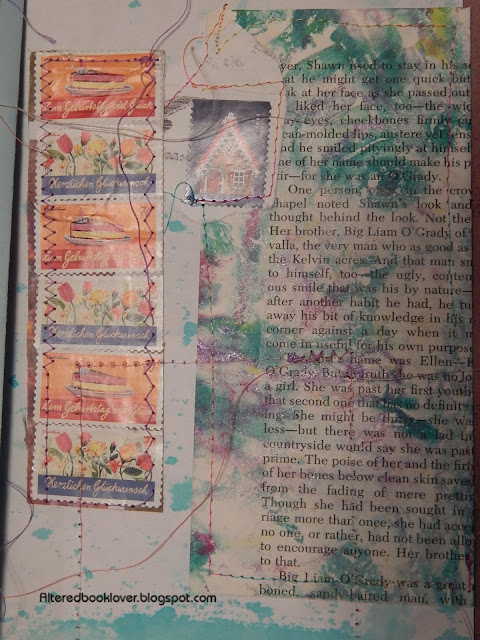 Zum Geburtstag viel Glück
Herzlichen Glückwunsch
Zum Geburtstag
Herzlichen Glückwunsch
Zum Geburtstag
Herzlichen Glückwunsch
Shawn used to stay in his
at he might get one quick
at her face as she passed
liked her face, too—the
eyes, cheekbones firmly
lips, austere yet
and he smiled pityingly at
of her name should make his
for she was an O'Grady.
One person, only, in the
chapel noted Shawn's look and
thought behind the look. Not the
Her brother, Big Liam O'Grady of
valla, the very man who as good as
the Kelvin acres. And that man
to himself, too—the ugly,
ous smile that was his by nature—
after another habit he had, he
away his bit of knowledge in his
corner against a day when it
come in useful for his own purpose
name was Ellen—
O'Grady. But in truth she was no
a girl. She was past her first
that second one that has no
ing. She might be thirty—she was
less—but there was not a lad in
countryside would say she was past
prime. The poise of her and the
of her bones below clean skin saved
from the fading of mere
Though she had been sought in
riage more than once, she had
no one, or rather, had not been
to encourage anyone. Her brother
to that.
Big Liam O'Grady was a great
boned, sandy-haired man, with
Alteredbooklover.blogspot.com